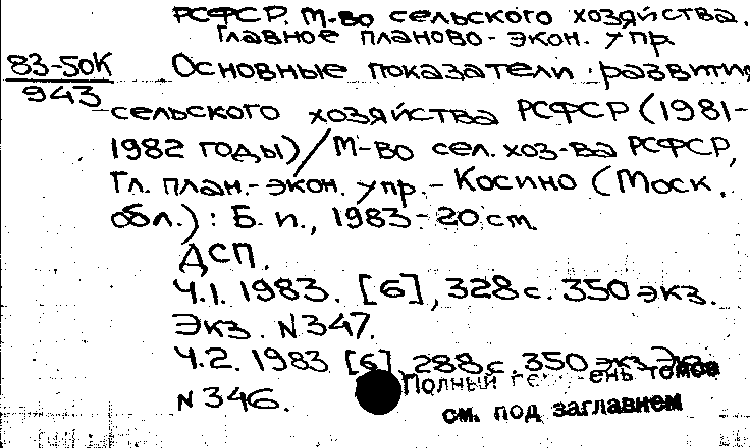 РСФСР. М-во сельского хозяйства.
Главное планово-экон. упр.
83-50К
943
Основные показатели развития
сельского хозяйства РСФСР (1981-
1982 годы) / М-во сел. хоз-ва РСФСР,
Гл. план.-экон. упр. - Косино (Моск.
обл.) : Б. и., 1983 - 20 см.
ДСП.
Ч.1. 1983. [6], 328 с. 350 экз.
Экз. N 347.
Ч.2. 1983 [6], 288 с. 350 экз. Экз.
N 346.
Полный томов
см. под заглавием